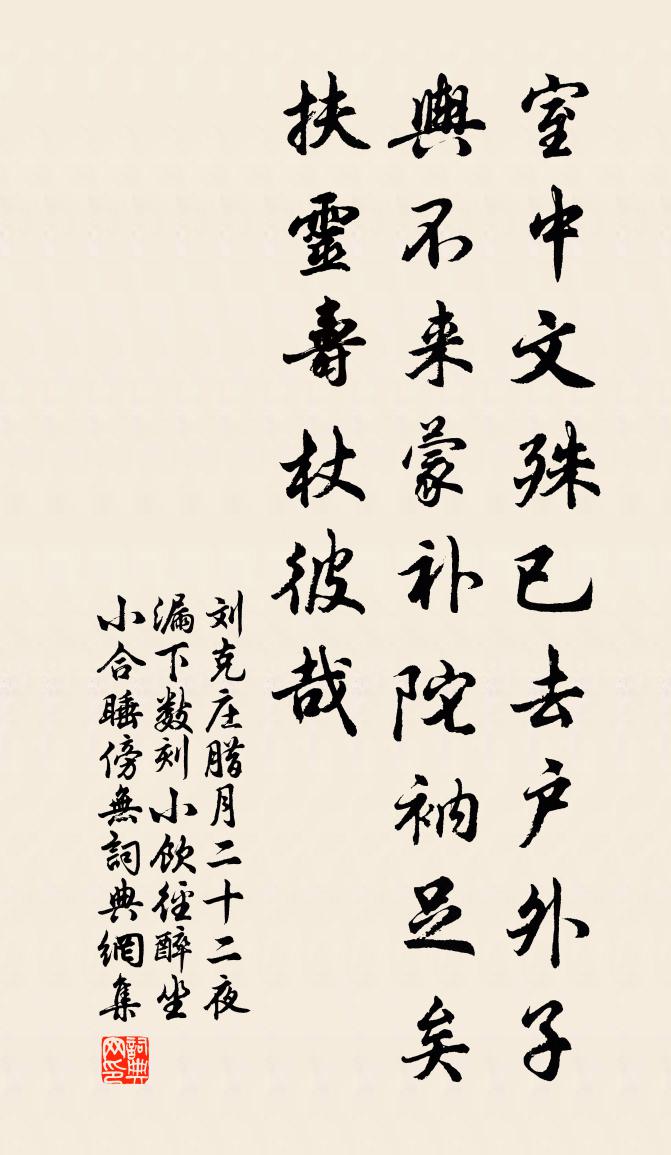 室中文殊已去户外子
輿不来蒙补陀衲足矣
扶靈壽杖彼哉
刘克庄腊月二十二夜
漏下数刻小饮径醉坐
小合睡傍無詞典網集
詞典网印